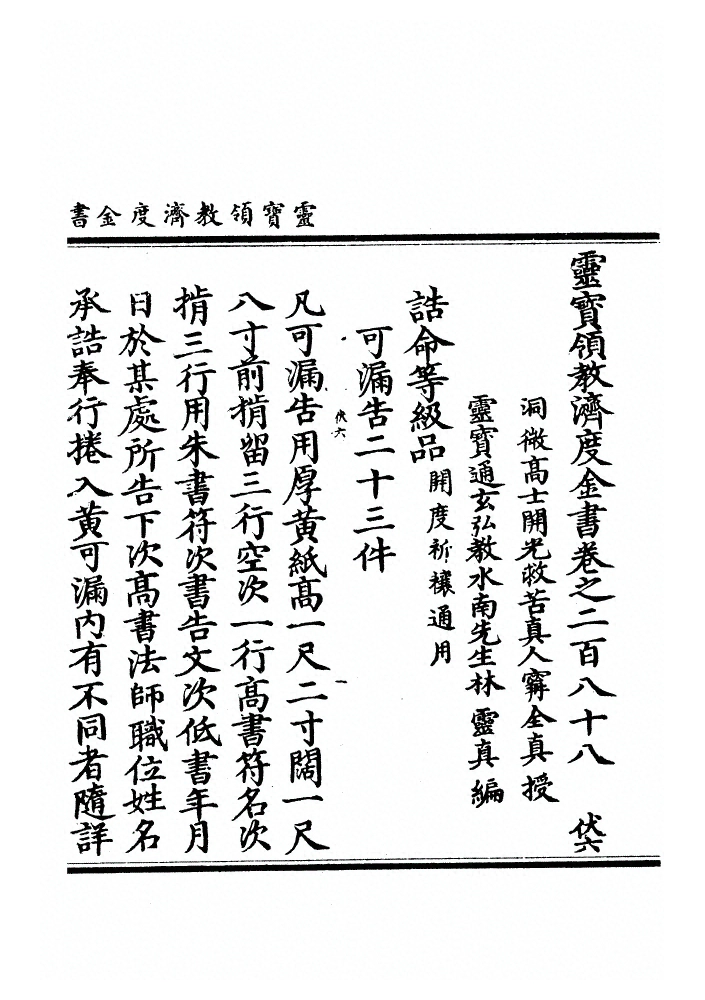 靈寶領教濟度金書
靈寶領教濟度金書卷之二百八十八 伏六
洞微高士開光救苦真人甯全真授
靈寶通玄弘教水南先生林靈真編
誥命等級品 開度祈禳通用
可漏告二十三件
伏六
凡可漏告用厚黃紙高一尺二寸闊一尺
八寸前揹留三行空次一行高書符名次
揹三行用朱書符次書告文次低書年月
日於某處所告下次高書法師職位姓名
承誥奉行捲入黃可漏內有不同者隨詳